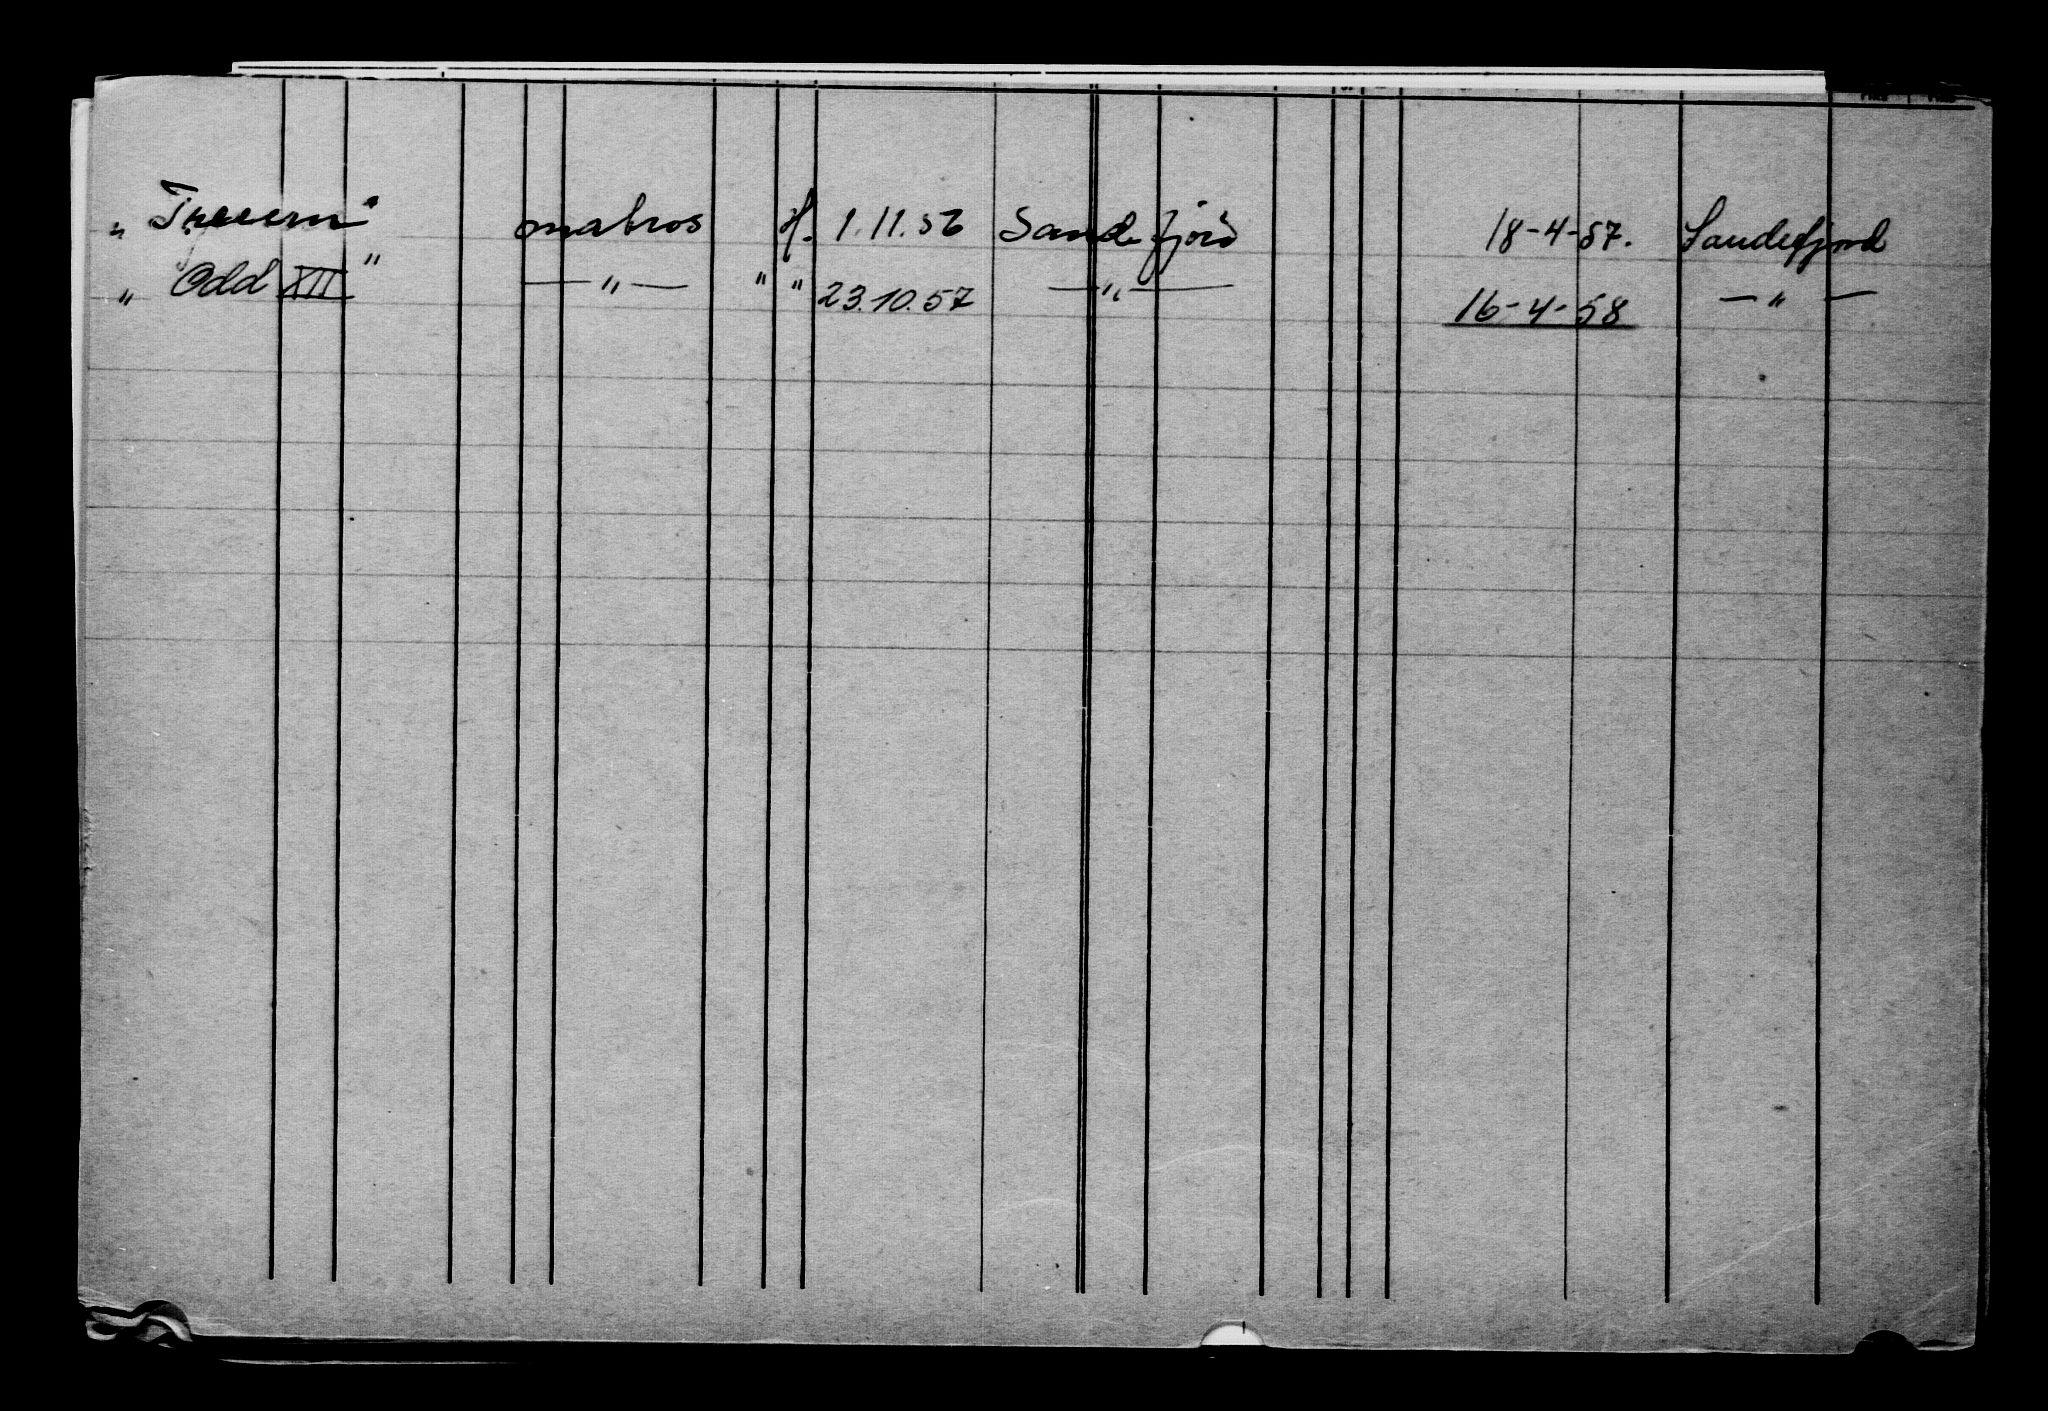 „ Thorern" matros H. 1.11.56 Sandefjord 18-4-57. Sandefjord
„ Odd XII " — " — " " 23.10.57 — " — 16-4-58 — " —